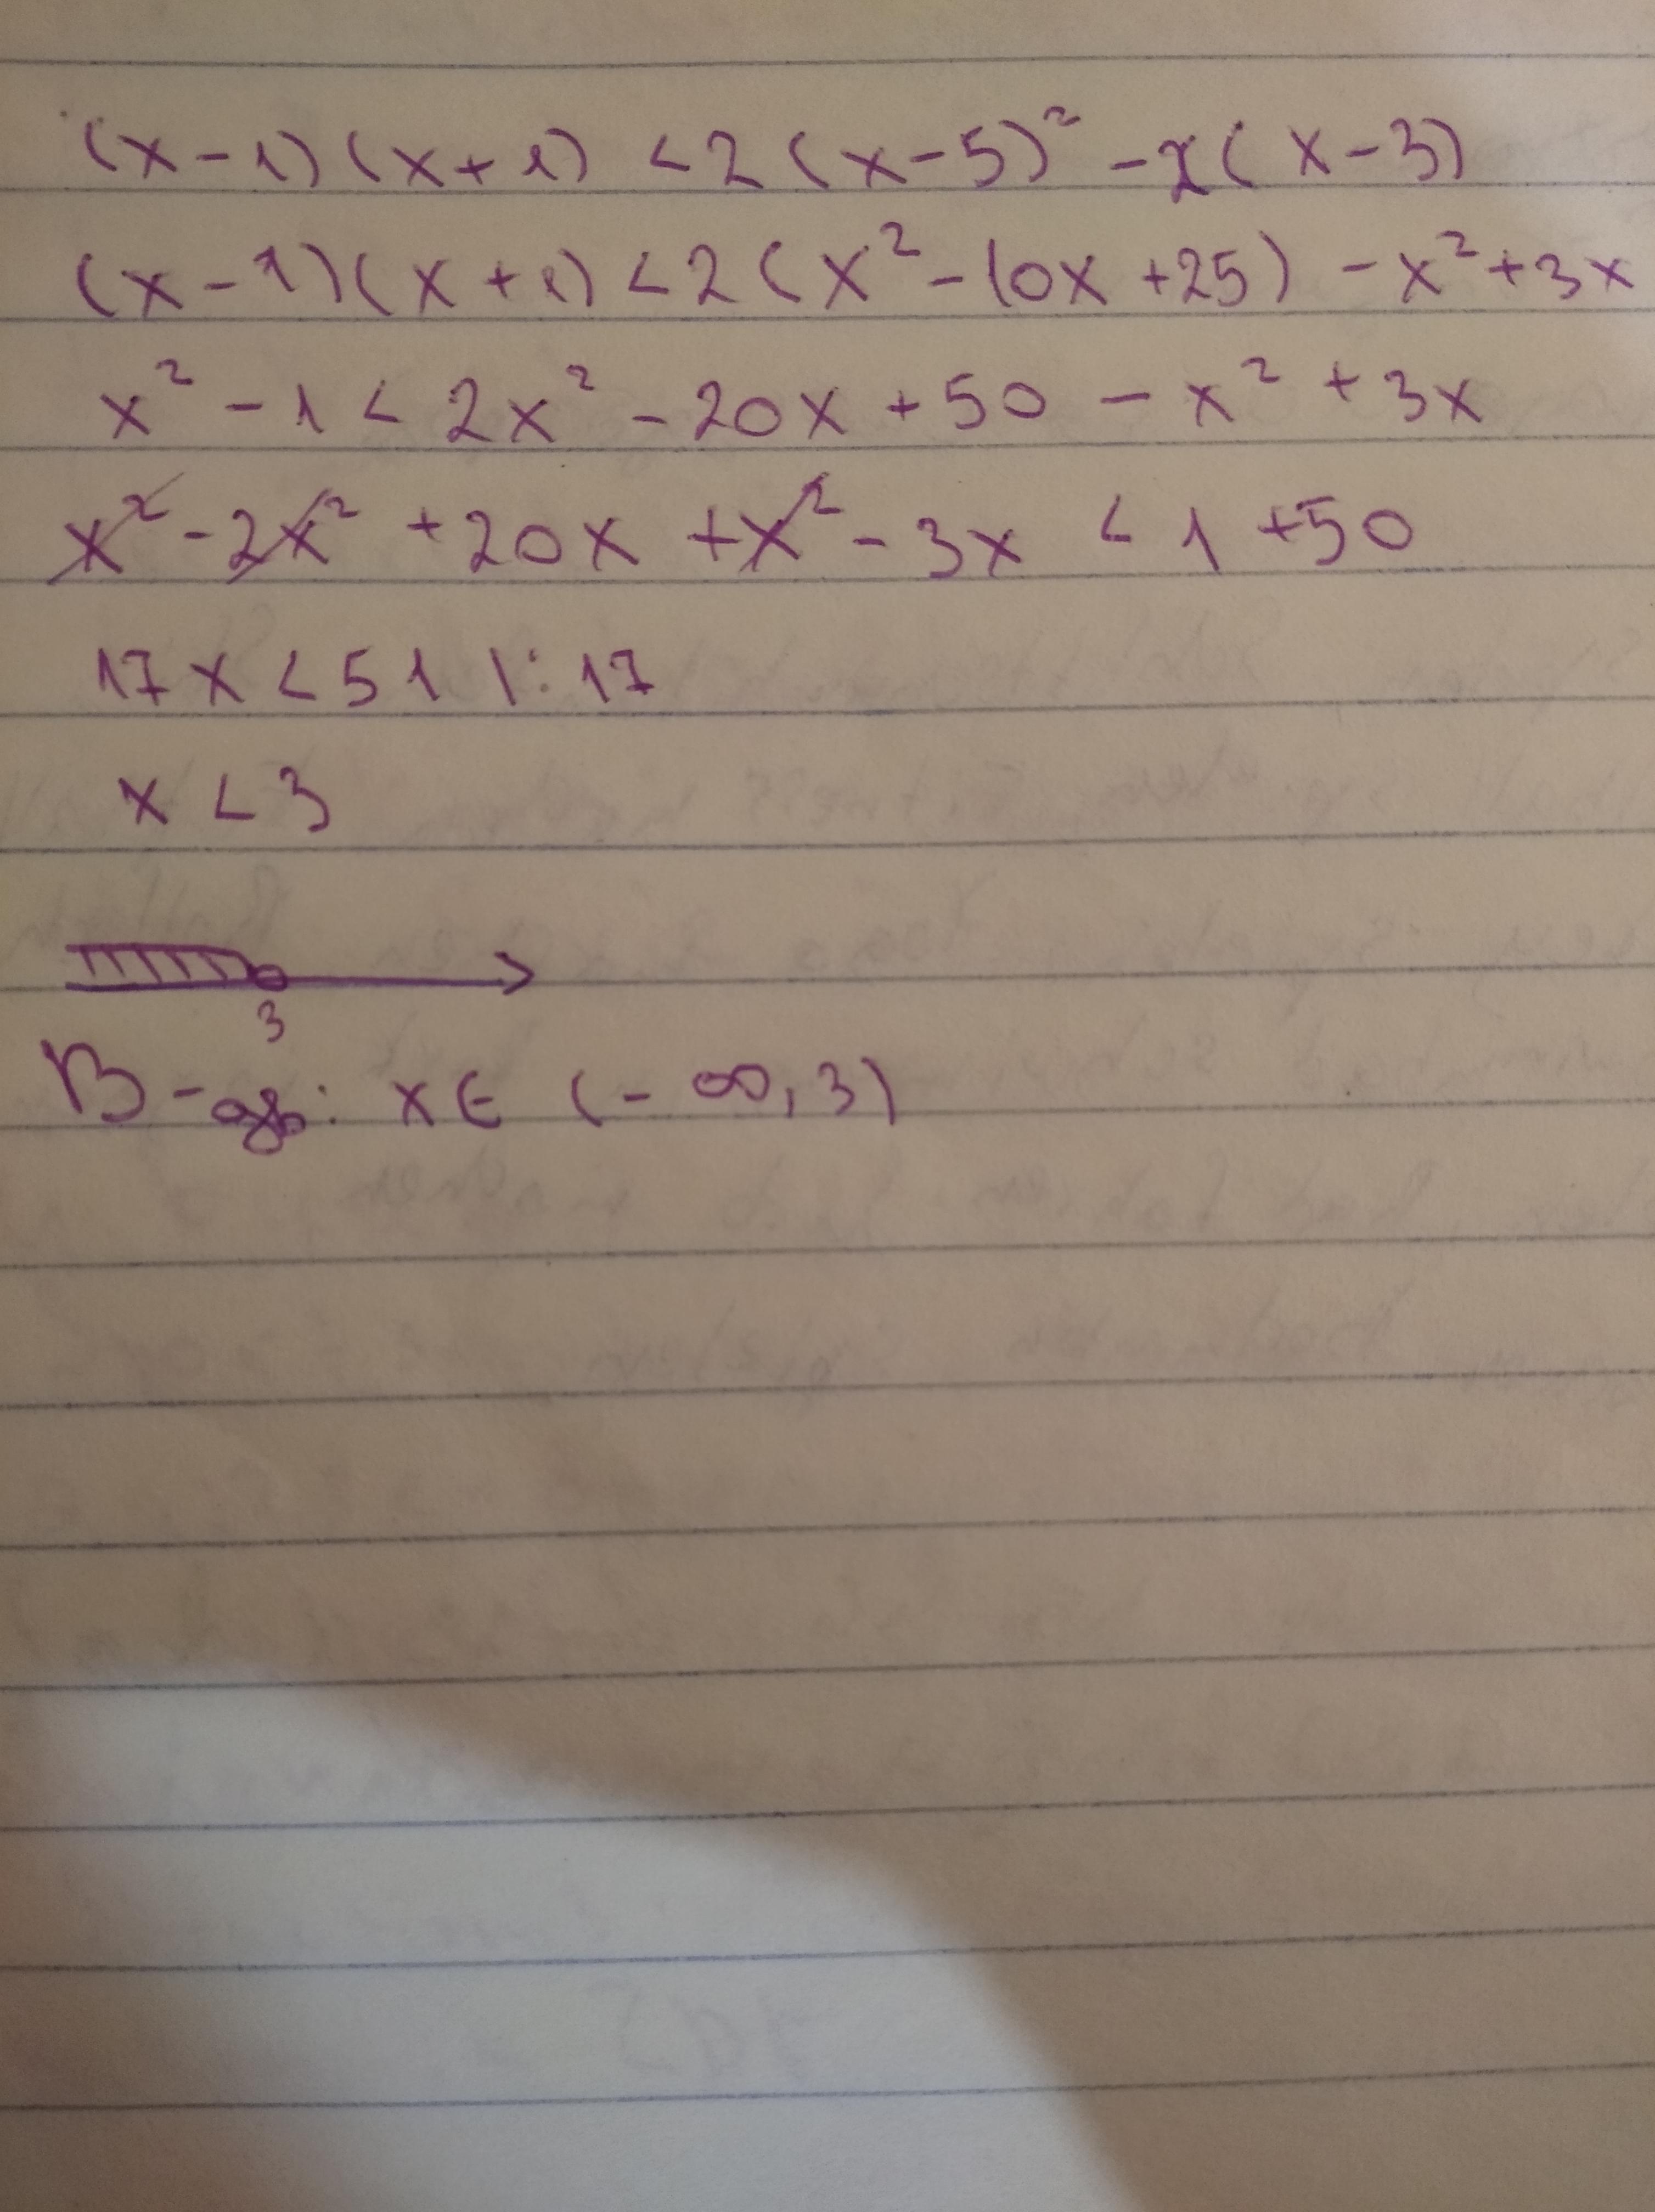 (x-1)(x+1) < 2(x-5)² - x(x-3)
(x-1)(x+1) < 2(x²-10x+25) - x²+3x
x² - 1 < 2x² - 20x + 50 - x² + 3x
x² - 2x² + 20x + x² - 3x < 1 + 50
17x < 51 |:17
x < 3
3
x ∈ (-∞, 3)